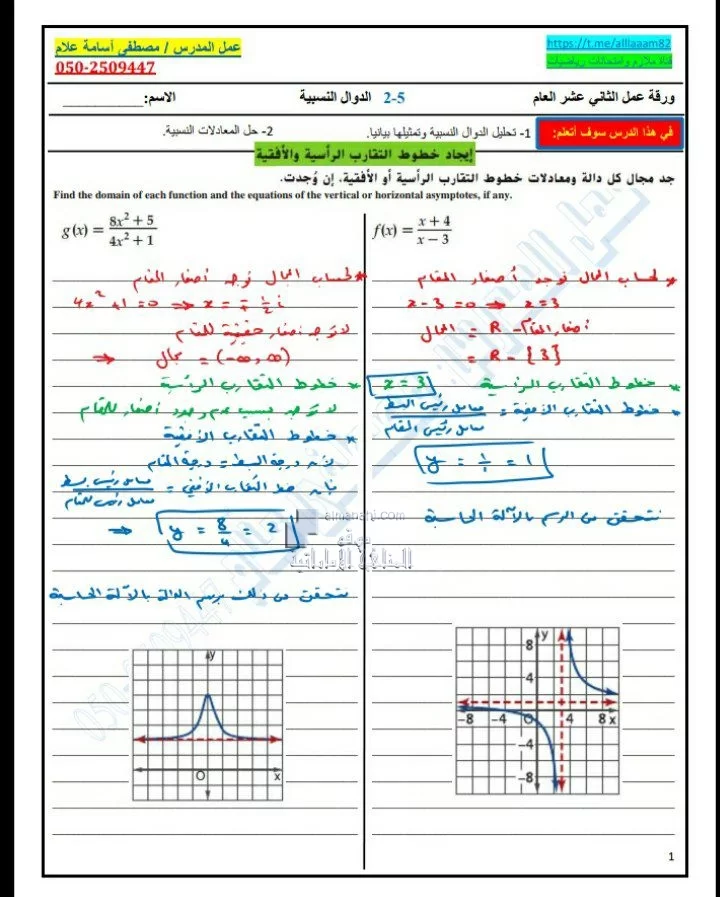 عمل المدرس / مصطفى أسامة علام
050-2509447
https://t.me/alllaaam82
قناة ملازم وامتحانات رياضيات
ورقة عمل الثاني عشر العام
2-5 الدوال النسبية
الاسم:____________
في هذا الدرس سوف أتعلم:
1- تحليل الدوال النسبية وتمثيلها بيانيا.
2- حل المعادلات النسبية.
إيجاد خطوط التقارب الرأسية والأفقية
جد مجال كل دالة ومعادلات خطوط التقارب الرأسية أو الأفقية، إن وُجدت.
Find the domain of each function and the equations of the vertical or horizontal asymptotes, if any.
f(x) = x + 4 / x − 3
* لحساب المجال نوجد أصفار المقام
x - 3 = 0 ⇒ x = 3
المجال = R - أصفار المقام
= R - {3}
* خطوط التقارب الرأسية x = 3
* خطوط التقارب الأفقية = معامل رئيسي البسط / معامل رئيسي المقام
y = 1/1 = 1
نتحقق من الرسم بالآلة الحاسبة
8 y
4
−8 −4 O 4 8 x
−4
−8
g(x) = 8x² + 5 / 4x² + 1
* لحساب المجال نوجد أصفار المقام
4x² + 1 = 0 ⇒ x = ∓ 1/2 i
لا توجد أصفار حقيقية للمقام
⇒ مجال = (-∞, ∞)
* خطوط التقارب الرأسية
لا توجد بسبب عدم وجود أصفار للمقام
* خطوط التقارب الأفقية
لأن درجة البسط = درجة المقام
فإن خط التقارب الأفقي = معامل رئيسي بسط / معامل رئيسي للمقام
⇒ y = 8/4 = 2
نتحقق من ذلك برسم الدالة بالآلة الحاسبة
y
O x
almanahj.com
موقع
المناهج الإماراتية
050-2509447
1